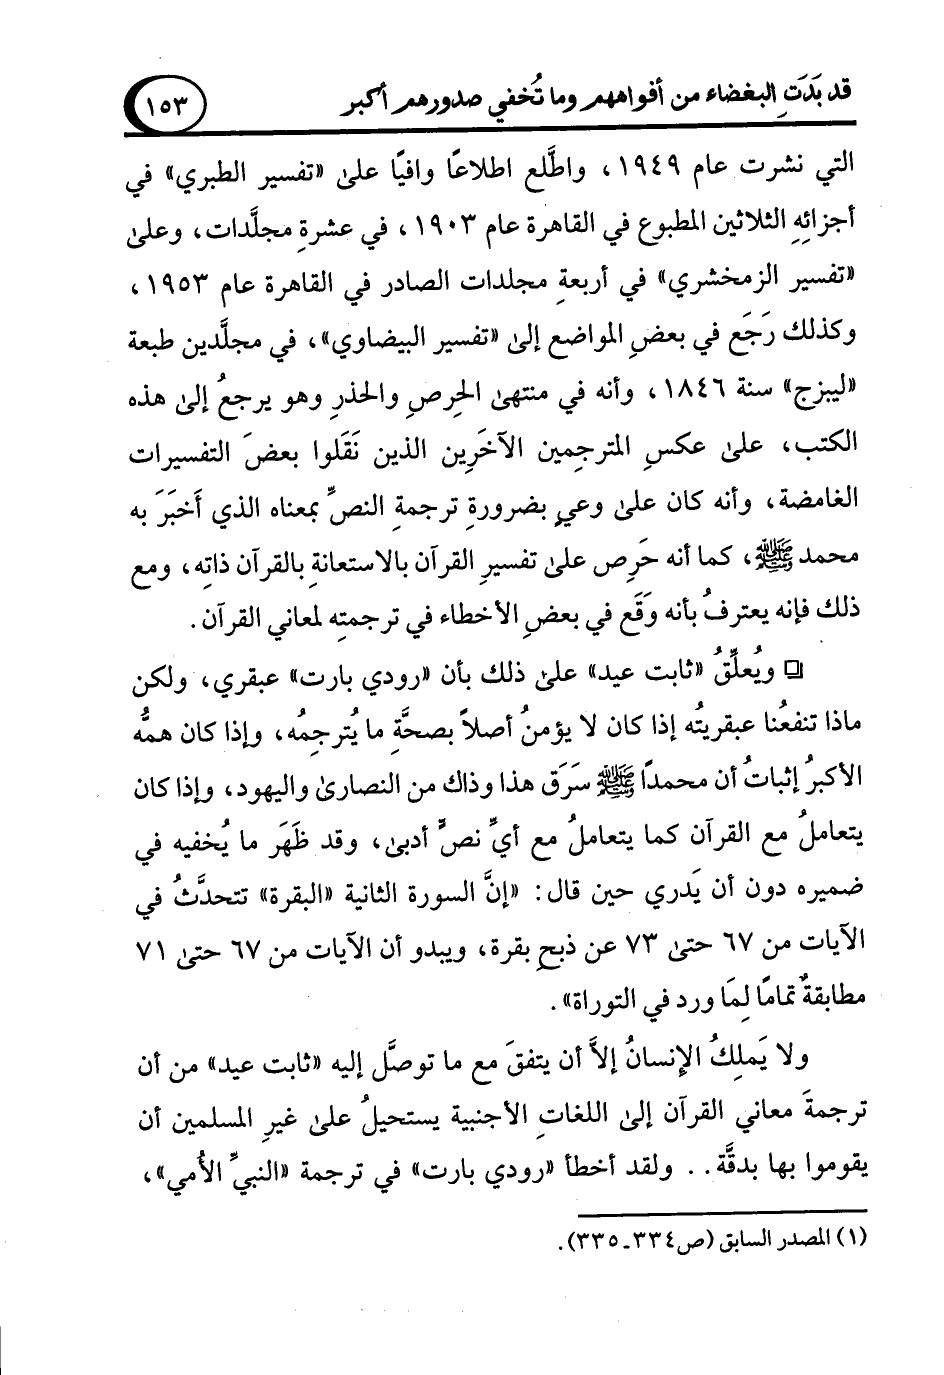 قد بَدَتِ البغضاء من أفواههم وما تُخفي صدورهم أكبر
١٥٣
التي نشرت عام ١٩٤٩، واطَّلع اطلاعًا وافيًا علىٰ «تفسير الطبري» في
أجزائِهِ الثلاثين المطبوع في القاهرة عام ١٩٠٣، في عشرةِ مجلَّدات، وعلىٰ
«تفسير الزمخشري» في أربعةِ مجلدات الصادر في القاهرة عام ١٩٥٣،
وكذلك رَجَع في بعضِ المواضع إلىٰ «تفسير البيضاوي»، في مجلَّدين طبعة
«ليبزج» سنة ١٨٤٦، وأنه في منتهىٰ الحِرصِ والحذرِ وهو يرجعُ إلىٰ هذه
الكتب، علىٰ عكسِ المترجمين الآخَرِين الذين نَقَلوا بعضَ التفسيرات
الغامضة، وأنه كان علىٰ وعيٍ بضرورةِ ترجمةِ النصِّ بمعناه الذي أَخبَرَ به
محمد ﷺ، كما أنه حَرِص علىٰ تفسيرِ القرآن بالاستعانةِ بالقرآن ذاتِه، ومع
ذلك فإنه يعترفُ بأنه وَقَع في بعضِ الأخطاء في ترجمتِه لمعاني القرآن.
❏ ويُعلِّقُ «ثابت عيد» علىٰ ذلك بأن «رودي بارت» عبقري، ولكن
ماذا تنفعُنا عبقريتُه إذا كان لا يؤمنُ أصلاً بصحَّةِ ما يُترجِمُه، وإذا كان همُّه
الأكبرُ إثباتُ أن محمدًا ﷺ سَرَق هذا وذاك من النصارىٰ واليهود، وإذا كان
يتعاملُ مع القرآن كما يتعاملُ مع أيِّ نصٍّ أدبىٰ، وقد ظَهَر ما يُخفيه في
ضميره دون أن يَدري حين قال: «إنَّ السورة الثانية «البقرة» تتحدَّثُ في
الآيات من ٦٧ حتىٰ ٧٣ عن ذبحِ بقرة، ويبدو أن الآيات من ٦٧ حتىٰ ٧١
مطابقةٌ تمامًا لِمَا ورد في التوراة».
ولا يَملِكُ الإنسانُ إلاَّ أن يتفقَ مع ما توصَّل إليه «ثابت عيد» من أن
ترجمةَ معاني القرآن إلىٰ اللغاتِ الأجنبية يستحيلُ علىٰ غيرِ المسلمين أن
يقوموا بها بدقَّة.. ولقد أخطأ «رودي بارت» في ترجمة «النبيِّ الأُمي»،
(١) المصدر السابق (ص٣٣٤ـ٣٣٥).